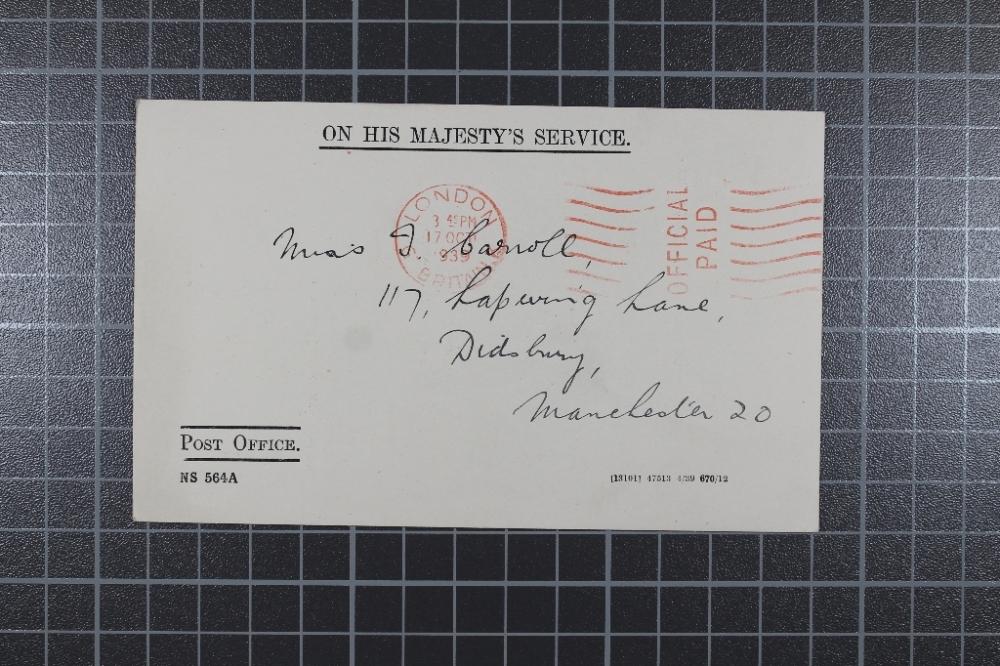 ON HIS MAJESTY'S SERVICE.
LONDON
3 45 PM
17 OCT
1939
OFFICIAL
PAID
Miss I. Carroll,
117, Lapwing Lane,
Didsbury,
Manchester 20
POST OFFICE.
NS 564A
[13101] 47513 4/39 670/12